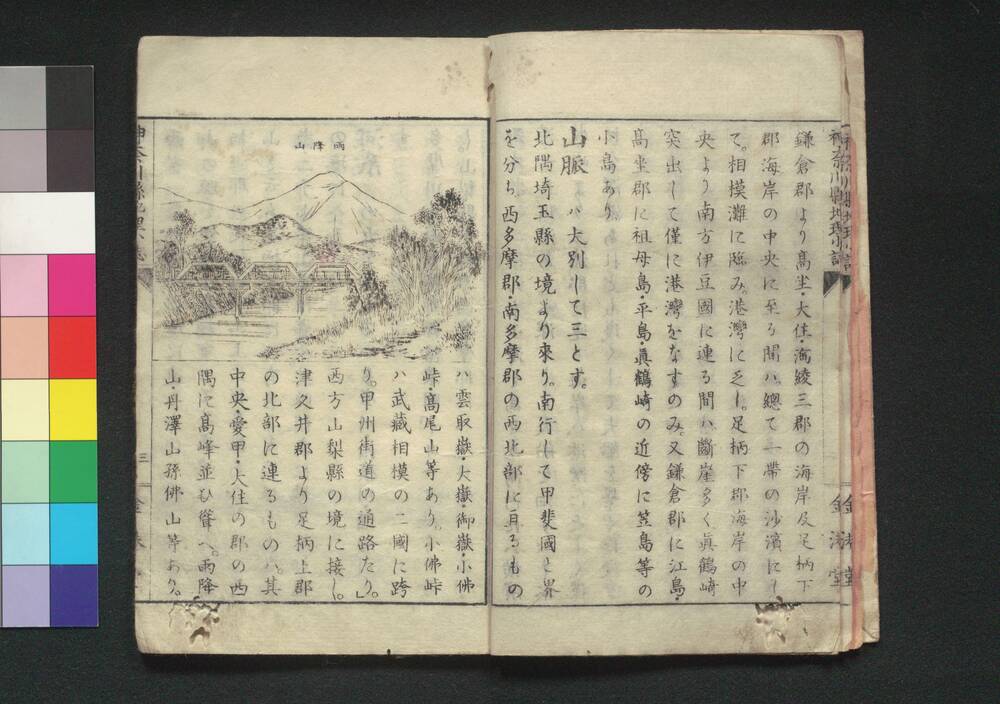 鎌倉郡より高坐・大住・淘綾三郡の海岸及足柄下
郡海岸の中央に至る間ハ。總て一帶の沙濱にし
て。相模灘に臨み。港灣に乏し。足柄下郡海岸の中
央より南方伊豆國に連る間ハ。斷崖多く眞鶴崎
突出して僅に港灣をなすのみ。又鎌倉郡に江島・
高坐郡に祖母島・平島・眞鶴崎の近傍に笠島等の
小島あり。
山脈 ハ大別して三とす。
北隅埼玉縣の境より來り。南行して甲斐國と界
を分ち。西多摩郡・南多摩郡の西北部に亘るもの
雨降山
ハ雲取嶽・大嶽・御嶽・小佛
峠・高尾山等あり。小佛峠
ハ武藏相模の二國に跨
り。甲州街道の通路たり。」
西方山梨縣の境に接し。
津久井郡より足柄上郡
の北部に連るものハ。其
中央・愛甲・大住の郡の西
隅に高峰並び聳へ。雨降
山・丹澤山孫佛山等あり。
三